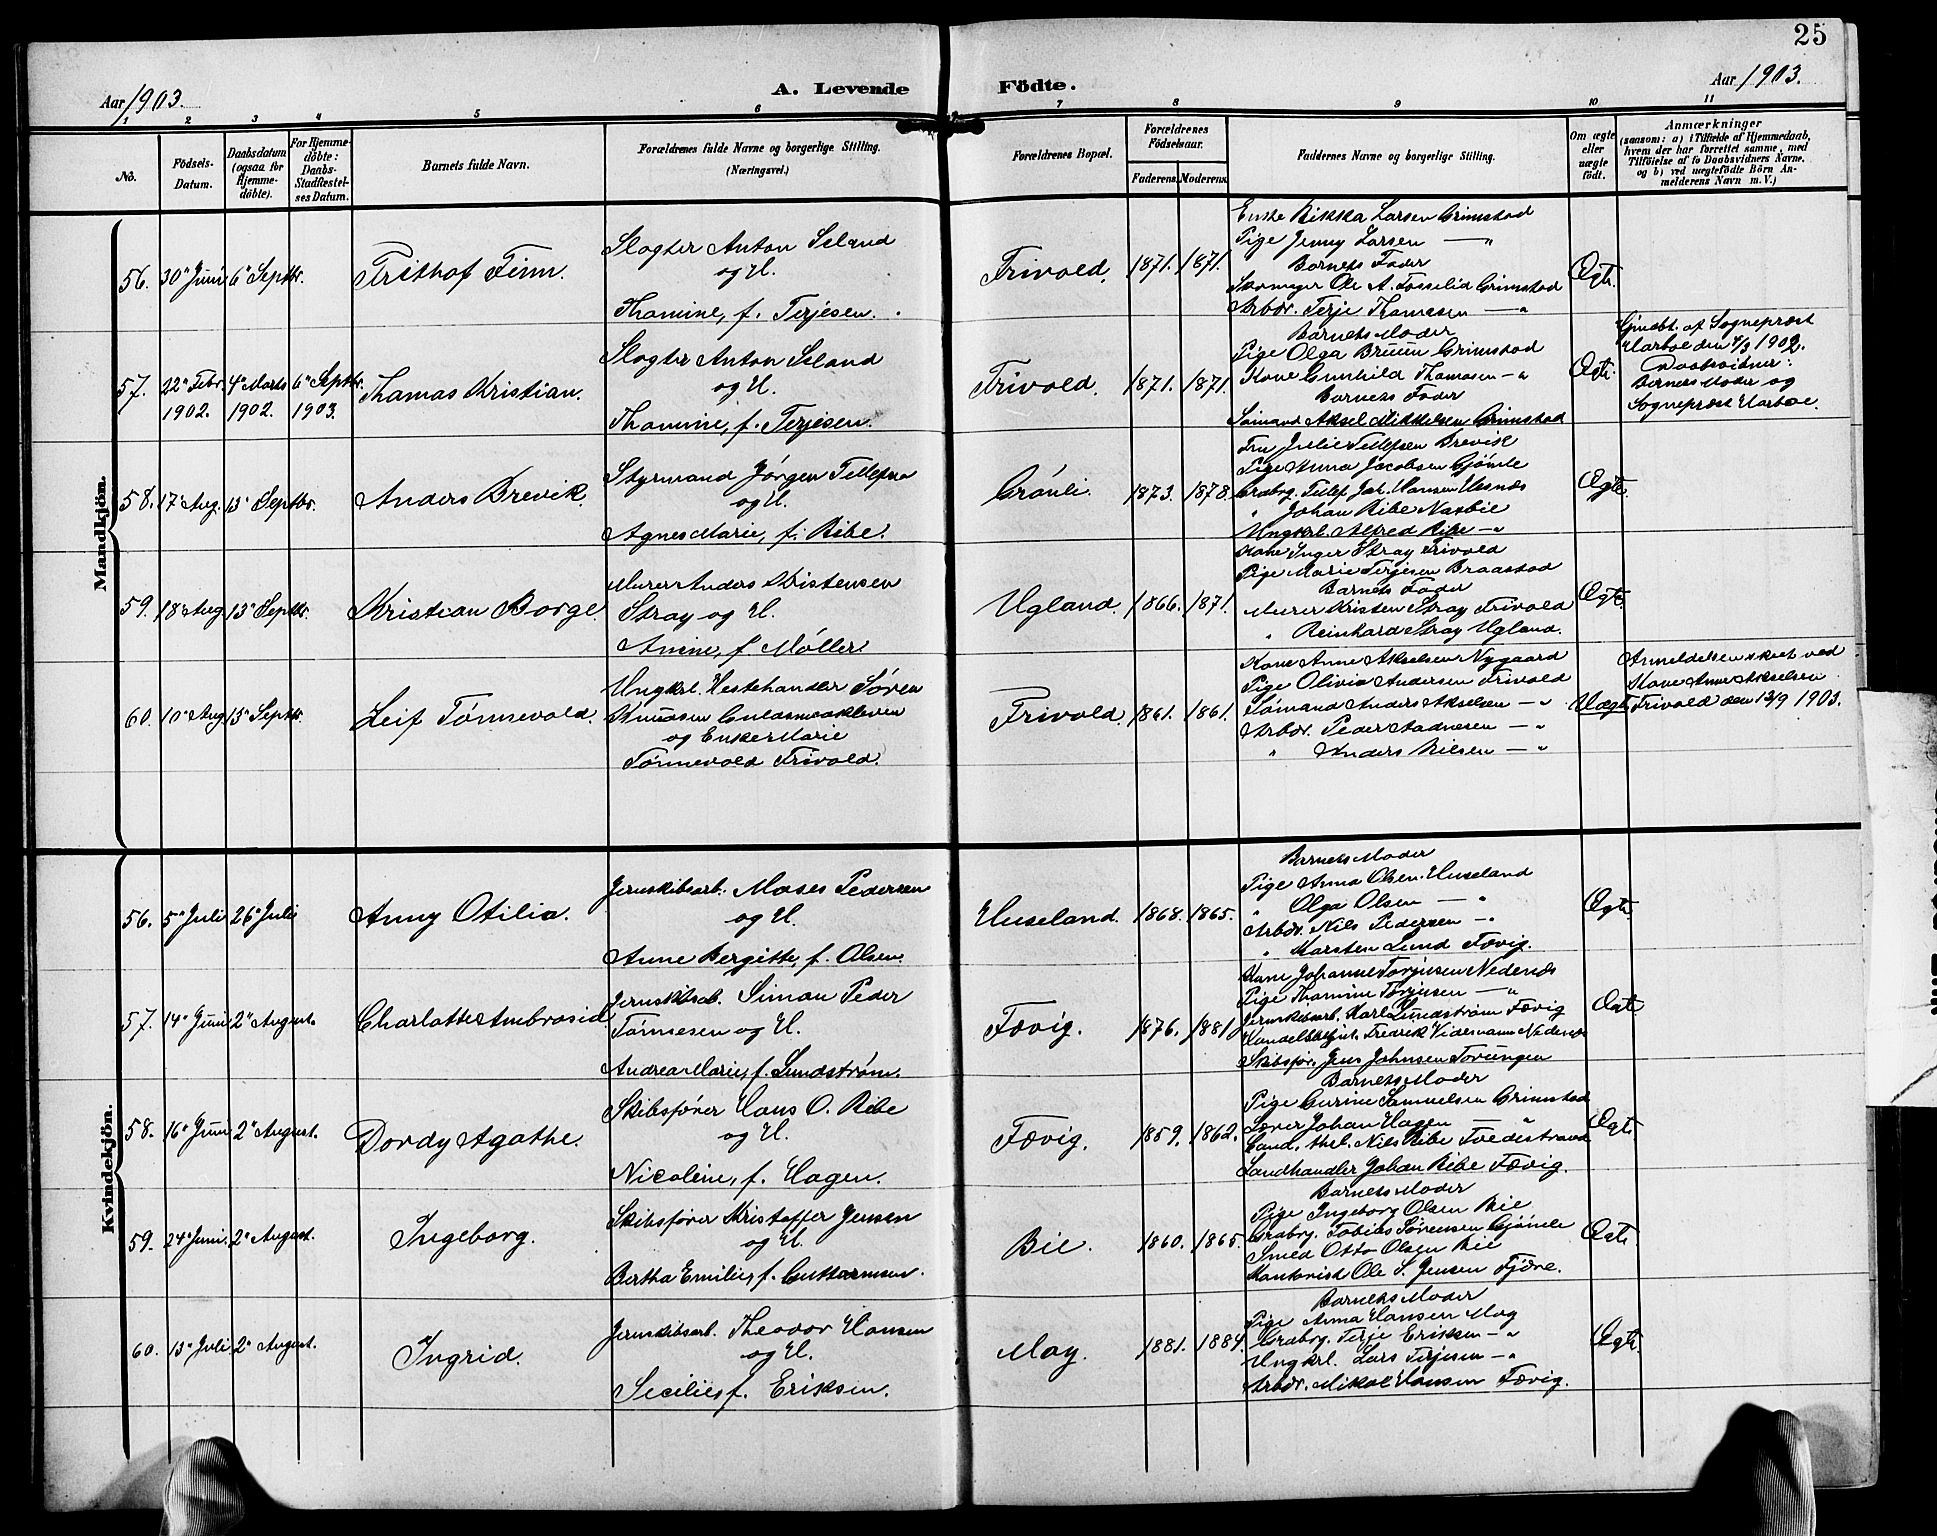 25
Aar 1903.
A. Levende Födte.
Aar 1903.
1 2 3 4 5 6 7 8 9 10 11
No.
Födsels-Datum.
Daabsdatum (ogsaa for Hjemme-döbte).
For Hjemme-döbte: Daabs-Stadfæstel-ses Datum.
Barnets fulde Navn.
Forældrenes fulde Navne og borgerlige Stilling. (Næringsvei.)
Forældrenes Bopæl.
Forældrenes Födselsaar.
Faderens. Moderens.
Faddernes Navne og borgerlige Stilling.
Om ægte eller uægte födt.
Anmærkninger
(saasom: a) i Tilfælde af Hjemmedaab, hvem der har forrettet samme, med Tilföielse af to Daabsvidners Navne, og b) ved uægtefödte Börn An-melderens Navn m. V.)
Mandkjön.
56. 30te Juni 6te Septbr. Frithof Finn.
Slagter Anton Seland
og H.
Thomine, f. Terjesen.
Frivold. 1871. 1871.
Enke Rikka Larsen Grimstad
Pige Jenny Larsen — "
Barnets Fader
Skomager Ole A. Fosselid Grimstad
Arbdr. Terje Thomesen — "
Ægte.
57. 22de Febr. 1902. 4de Marts 1902. 6te Septbr. 1903. Thomas Kristian.
Slagter Anton Seland
og H.
Thomine, f. Terjesen.
Frivold. 1871. 1871.
Barnets Moder
Pige Olga Bruun Grimstad
Kone Gunhild Thomasen — "
Barnets Fader
Sömand Aksel Mikkelsen Grimstad
Ægte.
Hjmdbt. af Sogneprest
Harboe den 4/3 1902.
Daabsvidner:
Barnets Moder og
Sogneprest Harboe.
58. 17de Aug. 13de Septbr. Anders Brevik.
Styrmand Jørgen Tellefsen
og H.
Agnes Marie, f. Ribe.
Grönli. 1873. 1878.
Fru Julie Tellefsen Brevik
Pige Anna Jacobsen Gjömle
Graabrg. Tellef Joh. Hansen Hesnæs
" Johan Ribe Naxbie
Ungkrl. Alfred Ribe — "
Ægte.
59. 18de Aug. 13de Septbr. Kristian Borge.
Murer Anders Kristensen
Stray og H.
Anine, f. Møller.
Ugland. 1866. 1871.
Kone Inger Stray Frivold
Pige Marie Terjesen Braastad
Barnets Fader
Murer Kristen Stray Frivold
" Reinhard Stray Ugland.
Ægte.
60. 10de Aug. 13de Septbr. Leif Tönnevold.
Ungkrl. Hestehandler Sören
Knudsen Guldsmedkleven
og Enke Marie
Tönnevold Frivold.
Frivold. 1861. 1861.
Kone Anne Akselsen Nygaard
Pige Olivia Andersen Frivold
Sömand Anders Akselsen — "
Arbdr. Peder Aadnesen — "
" Anders Nilsen — "
Uægte.
Anmeldelsen skeet ved
Kone Anne Akselsen
Frivold den 13/9 1903.
Kvindekjön.
56. 5te Juli 26de Juli Anny Otilia.
Jernskibsarb. Moses Pedersen
og H.
Anne Bergitte, f. Olsen.
Huseland. 1868. 1865.
Barnets Moder
Pige Anna Olsen Huseland
" Olga Olsen — "
Arbdr. Nils Pedersen — "
" Karsten Lund Fævig.
Ægte.
57. 14de Juni 2den August. Charlotte Ambrosia
Jernskibsarb. Simon Peder
Tönnesen og H.
Andrea Marie, f. Lundström.
Fævig. 1876. 1881.
Kone Johanne Torjusen Nedenæs
Pige Thomine Torjusen — "
Jernskibsarb. Karl Lundström Fævig
Handelsbetjnt. Fredrik Videmann Nedenæs
Skibsför. Jens Johnsen Torungen
Ægte
58. 16de Juni 2den August. Dordy Agathe.
Skibsfører Hans O. Ribe
og H.
Nicoline, f. Hagen.
Fævig. 1859. 1862.
Barnets Moder
Pige Gurine Samuelsen Grimstad
Farver Johan Hagen — "
Cand. theol. Nils Ribe Tvedestrand
Landhandler Johan Ribe Fævig.
Ægte.
59. 24de Juni. 2den August. Ingeborg.
Skibsfører Kristoffer Jensen
og H.
Bertha Emilie, f. Guttormsen.
Bie. 1860. 1865.
Barnets Moder
Pige Ingeborg Olsen Bie
Graabrg. Tobias Sørensen Gjömle
Smed Otto Olsen Bie
Kontorist Ole S. Jensen Fjære.
Ægte.
60. 13de Juli 2den August. Ingrid.
Jernskibsarb. Theodor Hansen
og H.
Secilie, f. Eriksen.
Moy. 1881. 1884.
Barnets Moder
Pige Anna Hansen Moy
Graabrg. Terje Eriksen — "
Ungkrl. Lars Terjesen — "
Arbdr. Mikal Hansen Fævig.
Ægte.